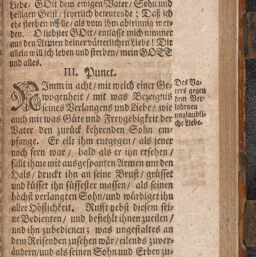 Liebe, GOtt dem ewigen Vater / Sohn und
heiligen Geist / seyerlich betheurende: Daß ich
ehe sterben wolle / als von ihm abtrinnig wer-
den. O liebster GOtt / entlasse mich nimmer
aus den Armen deiner vätterlichen Liebe! Dir
allein will ich leben und sterben / mein GOTT
und alles.
III. Punct.
NImm in acht / mit welch einer Ge-
wogenheit / mit was Bezeugnis
seines Verlangens und Liebe / wie
auch mit was Güte und Freygebigkeit der
Vater den zurück kehrenden Sohn em-
pfange. Er eilt ihm entgegen / als jener
noch fern war / bald als er ihn ersehen /
fällt ihme mit ausgespanten Armen um den
Hals / druckt ihn an seine Brust / grüsset
und küsset ihn süssester massen / als seinen
höchst verlangten Sohn / und würdiget ihn
aller Höflichkeit. Rufft gebst diesem sei-
ne Bedienten / und befiehlt ihnen zueilen /
und ihn zubedienen; was ungestaltes an
dem Reisenden zusehen wär / eilends zuver-
ändern / und als seinen Sohn und Erben zu-
Des Va-
ters gegen
den Ver-
lohrnen
unglaubli-
che Liebe.